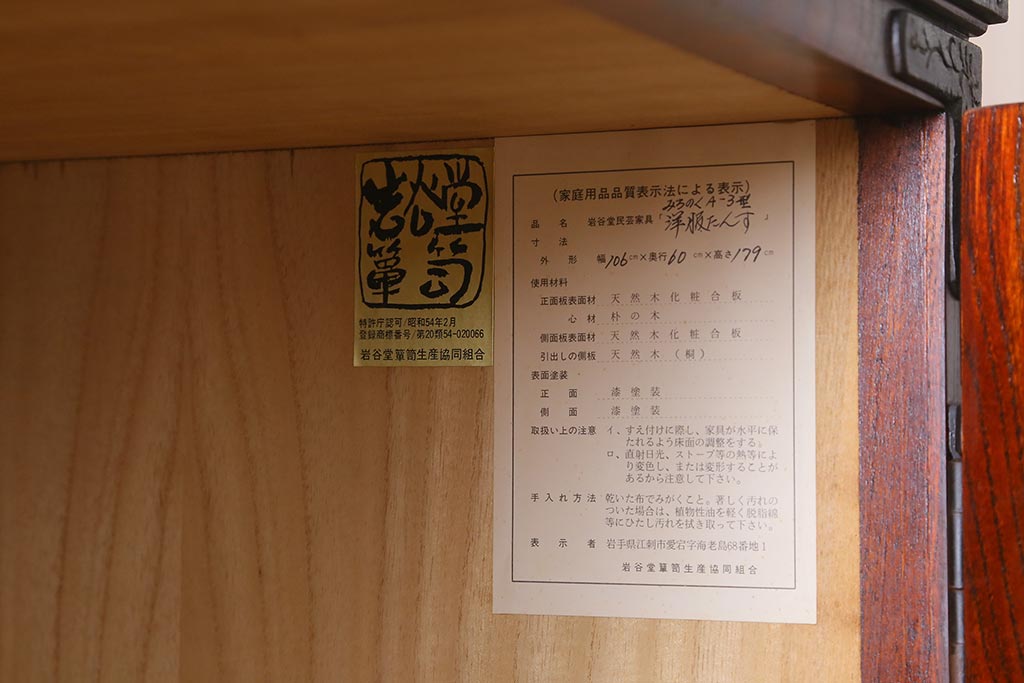 岩谷堂
簞笥
特許庁認可/昭和54年2月
登録商標番号/第20類54-020066
岩谷堂簞笥生産協同組合
(家庭用品品質表示法による表示)
みちのくA-3型
品名 岩谷堂民芸家具「洋服たんす」
寸法
外形 幅106cm×奥行60cm×高さ179cm
使用材料
正面板表面材 天然木化粧合板
心材 朴の木
側面板表面材 天然木化粧合板
引出しの側板 天然木(桐)
表面塗装
正面 漆塗装
側面 漆塗装
取扱い上の注意 イ、すえ付けに際し、家具が水平に保
たれるよう床面の調整をする。
ロ、直射日光、ストーブ等の熱等によ
り変色し、または変形することが
あるから注意して下さい。
手入れ方法 乾いた布でみがくこと。著しく汚れの
ついた場合は、植物性油を軽く脱脂綿
等にひたし汚れを拭き取って下さい。
表示者 岩手県江刺市愛宕字海老島68番地1
岩谷堂簞笥生産協同組合